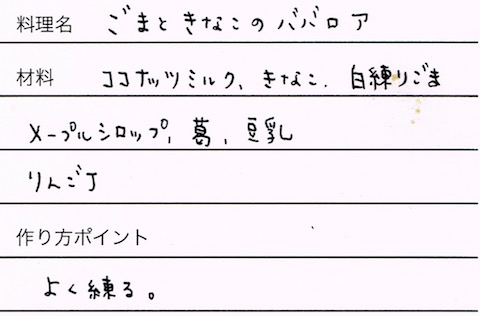 料理名 ごまときなこのババロア
材料 ココナッツミルク、きなこ、白練りごま
メープルシロップ、葛、豆乳
りんごJ
作り方ポイント
よく練る。